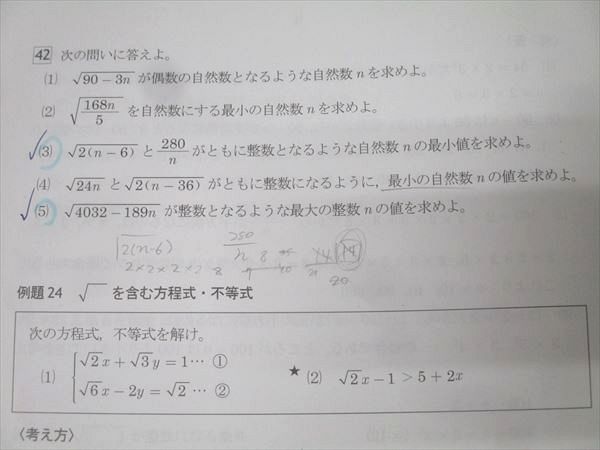 42 次の問いに答えよ。
(1) √(90−3n) が偶数の自然数となるような自然数 n を求めよ。
(2) √(168n/5) を自然数にする最小の自然数 n を求めよ。
(3) √(2(n−6)) と 280/n がともに整数となるような自然数 n の最小値を求めよ。
(4) √(24n) と √(2(n−36)) がともに整数になるように，最小の自然数 n の値を求めよ。
(5) √(4032−189n) が整数となるような最大の整数 n の値を求めよ。
2(n-6)
2×2×2×2
14 14
例題 24 √ を含む方程式・不等式
次の方程式，不等式を解け。
(1) { √2x+√3y=1… ①
√6x−2y=√2 … ②
★(2) √2x−1＞5+2x
〈考え方〉